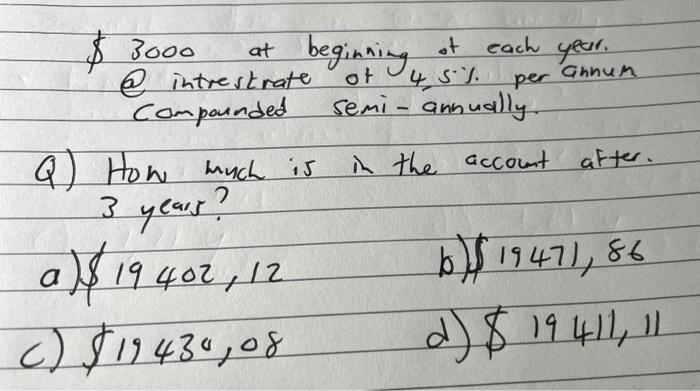 $ 3000 at beginning of each year.
@ intrestrate of 4,5%. per annum
Compounded semi-annually.
Q) How much is in the account after.
3 years?
a) $ 19 402,12 b) $ 19 471,86
c) $ 19 430,08 d) $ 19 411,11